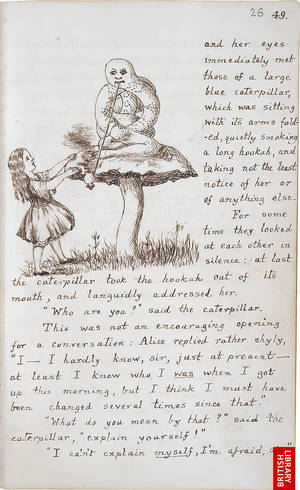 26 49.
and her eyes
immediately met
those of a large
blue caterpillar,
which was sitting
with its arms fold-
-ed, quietly smoking
a long hookah, and
taking not the least
notice of her or
of anything else.
For some
time they looked
at each other in
silence: at last
the caterpillar took the hookah out of its
mouth, and languidly addressed her.
"Who are you?" said the caterpillar.
This was not an encouraging opening
for a conversation: Alice replied rather shyly,
"I— I hardly know, sir, just at present—
at least I know who I was when I got
up this morning, but I think I must have
been changed several times since that."
"What do you mean by that?" said the
caterpillar, "explain yourself!"
"I can't explain myself, I'm afraid,
BRITISH
LIBRARY